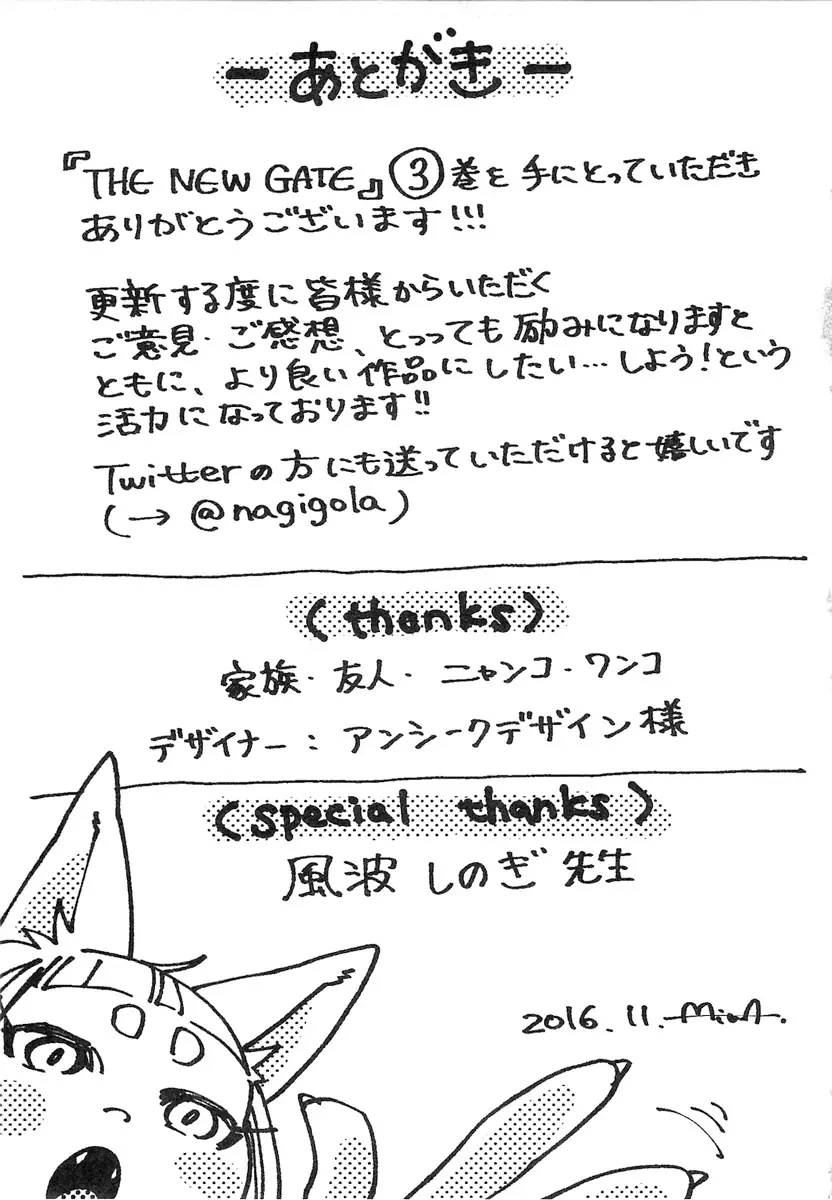 ーあとがきー
『THE NEW GATE』③巻を手にとっていただき
ありがとうございます!!!
更新する度に皆様からいただく
ご意見・ご感想、とっっても励みになりますと
ともに、より良い作品にしたい…しよう!という
活力になっております!!
Twitterの方にも送っていただけると嬉しいです
(→ @nagigola)
(thanks)
家族・友人・ニャンコ・ワンコ
デザイナー:アンシークデザイン様
(special thanks)
風波しのぎ先生
2016.11.MiwA.